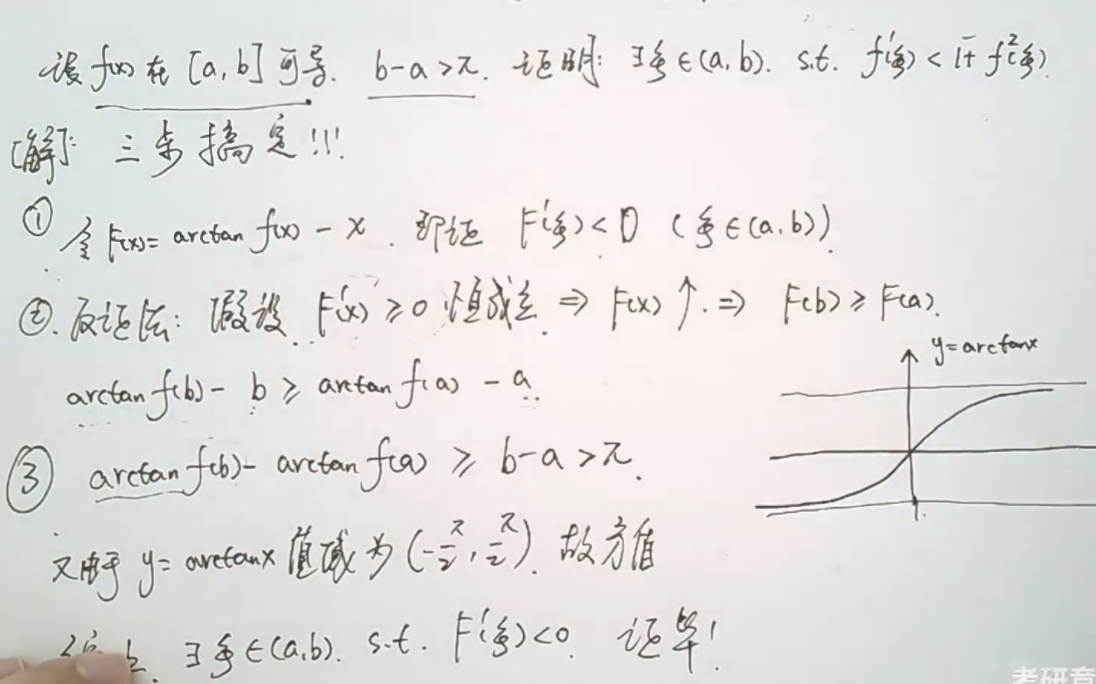 设 f(x) 在 [a,b] 可导. b-a>π. 证明: ∃ξ∈(a,b). s.t. f'(ξ)<1+f²(ξ).
[解]: 三步搞定!!!
① 令 F(x)=arctan f(x) - x. 即证 F'(ξ)<0 (ξ∈(a,b))
②. 反证法: 假设 F'(x)≥0 恒成立 ⇒ F(x)↑. ⇒ F(b)≥F(a).
arctan f(b) - b ≥ arctan f(a) - a
y=arctanx
③ arctan f(b) - arctan f(a) ≥ b-a>π.
又由于 y=arctanx 值域为 (-π/2, π/2). 故矛盾
∃ξ∈(a,b). s.t. F'(ξ)<0. 证毕!
考研竟